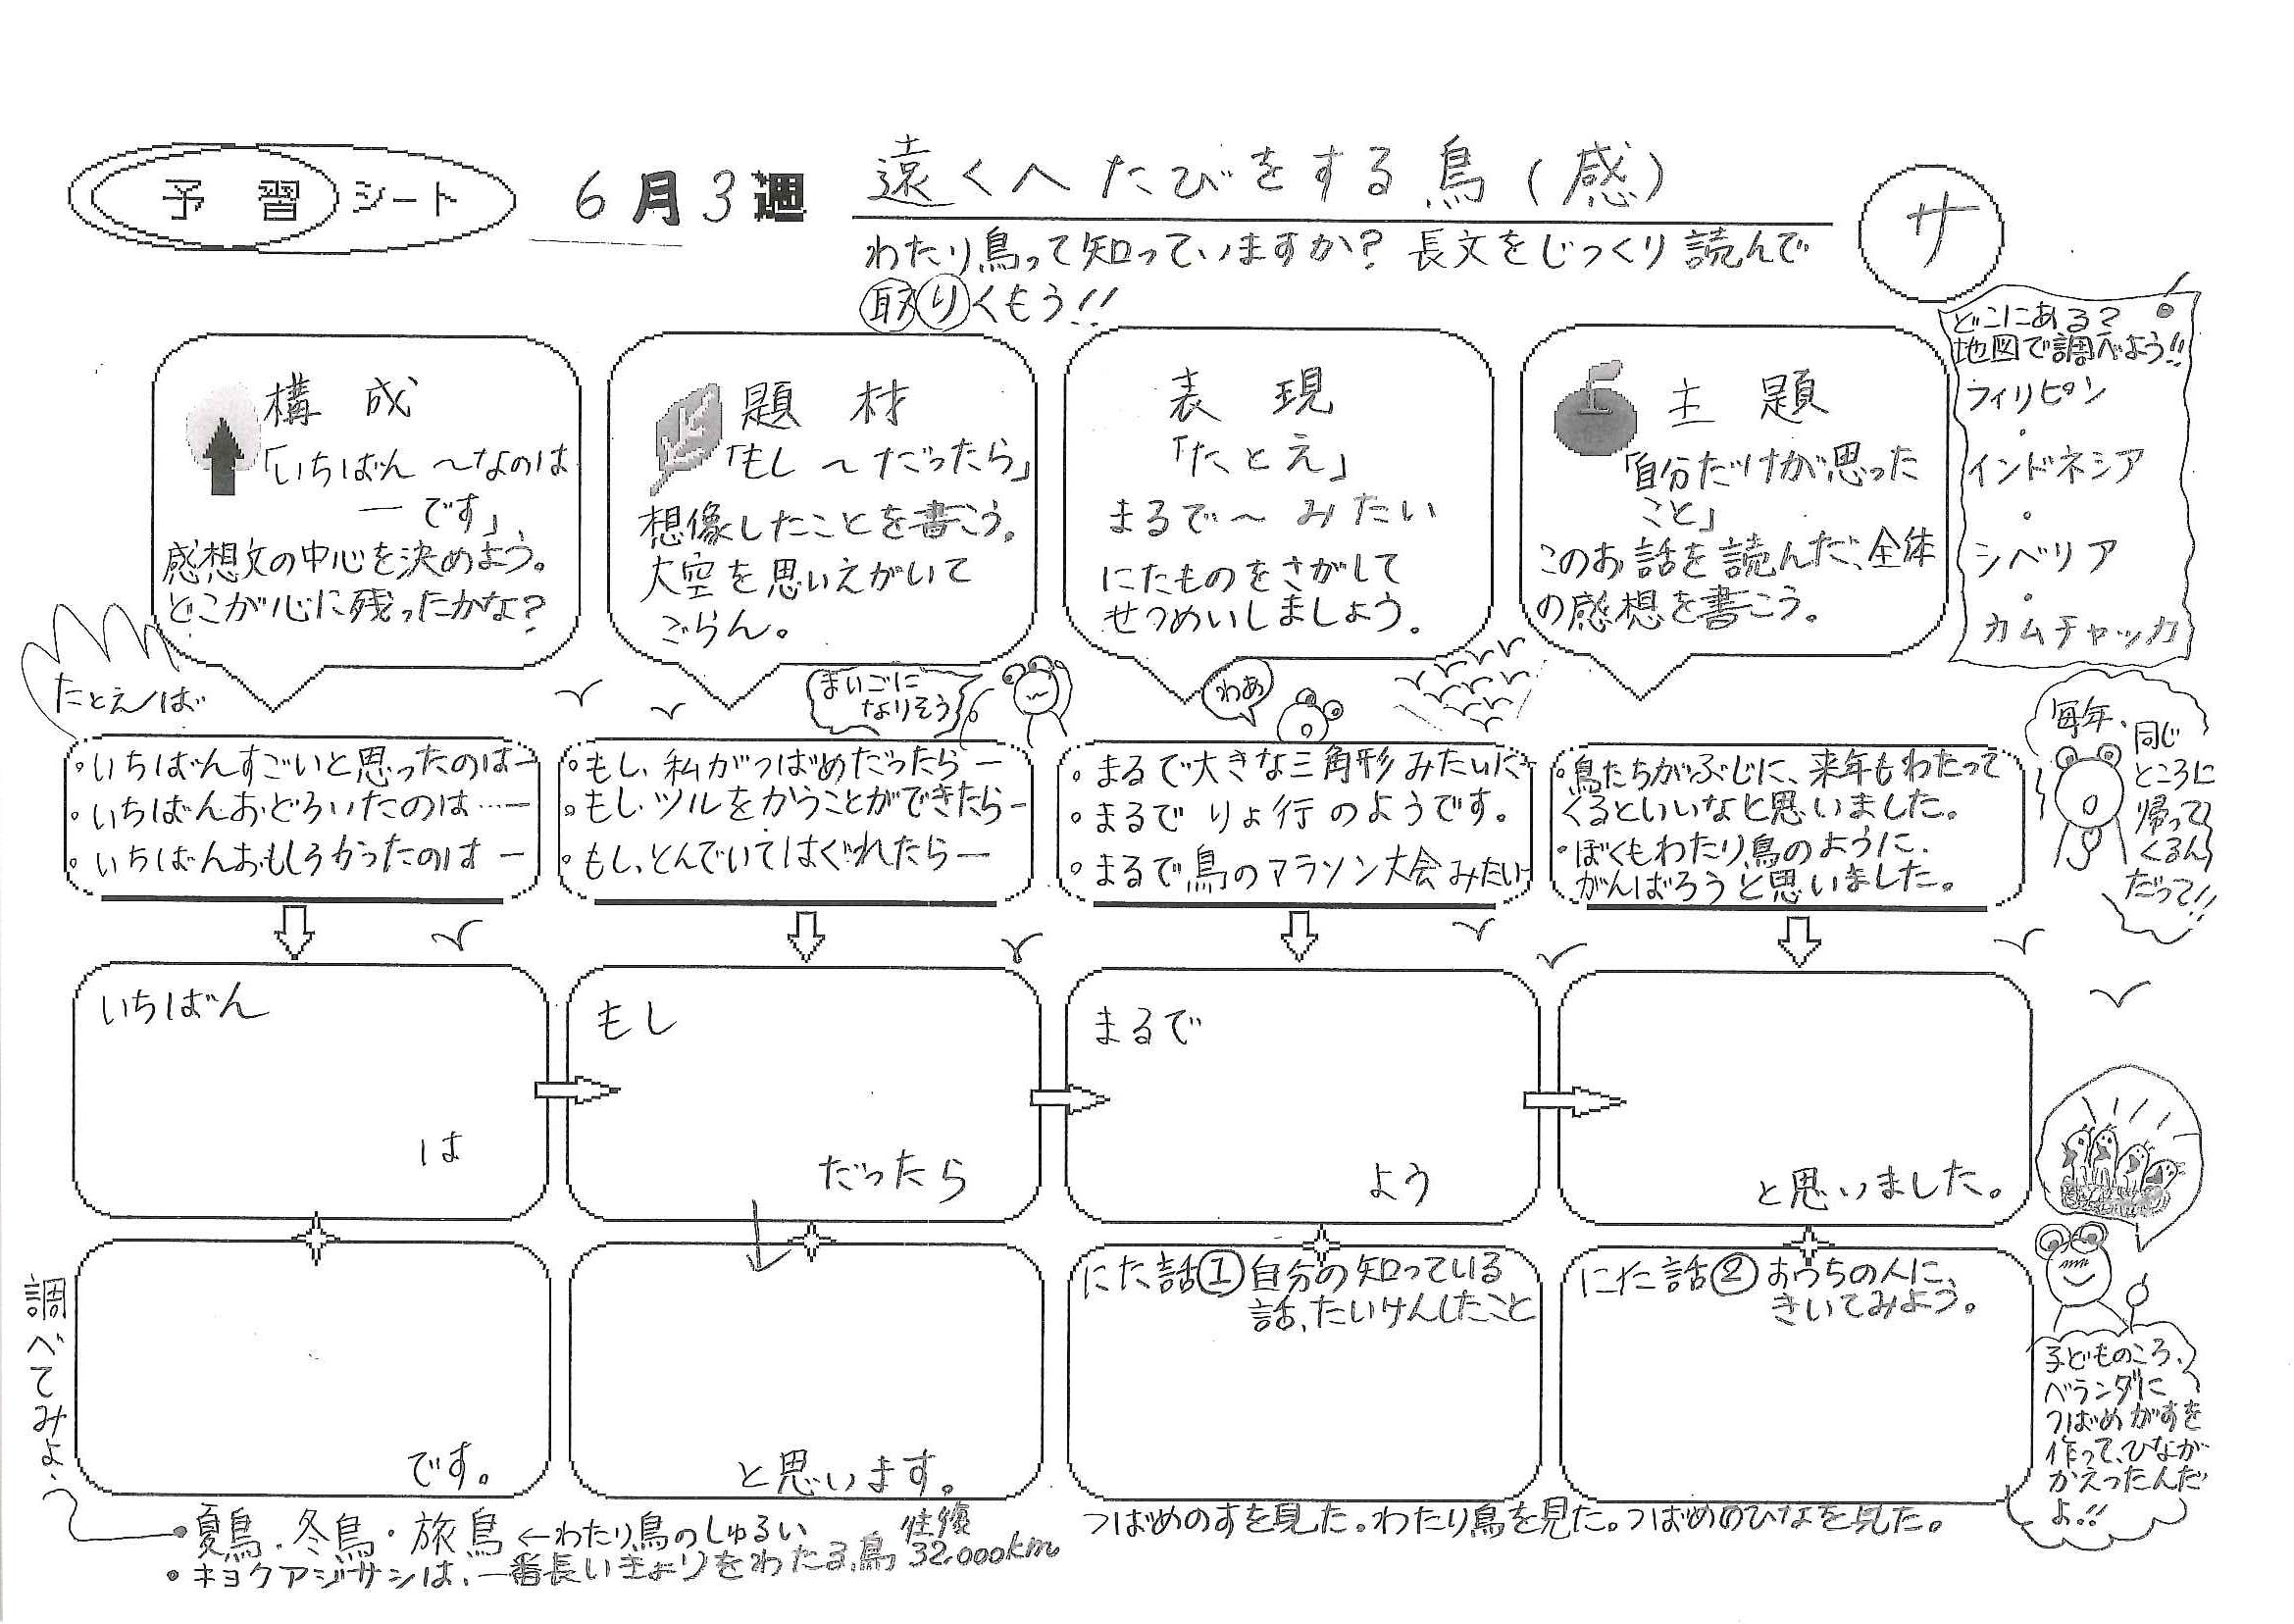 予習シート
6月3週
遠くへたびをする鳥(感)
サ
わたり鳥って知っていますか? 長文をじっくり読んで
取りくもう!!
構成
「いちばん 〜なのは
ー です」
感想文の中心を決めよう。
どこが心に残ったかな?
題材
「もし 〜 だったら」
想像したことを書こう。
大空を思いえがいて
ごらん。
表現
「たとえ」
まるで〜 みたい
にたものをさがして
せつめいしましょう。
主題
「自分だけが思った
こと」
このお話を読んだ、全体
の感想を書こう。
どこにある?
地図で調べよう!!
フィリピン
・
インドネシア
・
シベリア
・
カムチャッカ
たとえば
まいごに
なりそう
わあ
・いちばんすごいと思ったのはー
・いちばんおどろいたのは…ー
・いちばんおもしろかったのは ー
・もし、私がつばめだったら ー
・もし、ツルをかうことができたらー
・もし、とんでいてはぐれたら ー
・まるで大きな三角形みたいに
・まるで りょ行 のようです。
・まるで鳥のマラソン大会みたいー
・鳥たちがぶじに、来年もわたって
くるといいなと思いました。
・ぼくもわたり鳥のように、
がんばろうと思いました。
毎年、
同じ
ところに
帰って
くるん
だって!!
いちばん
は
もし
だったら
まるで
よう
と思いました。
です。
と思います。
にた話① 自分の知っている
話、たいけんしたこと
にた話② おうちの人に、
きいてみよう。
子どものころ、
ベランダに
つばめがすを
作って、ひなが
かえったんだ
よ!!
調べてみよう
・夏鳥・冬鳥・旅鳥 ←わたり鳥のしゅるい
・キョクアジサシは、一番長いきょりをわたる鳥
往復
32,000km
つばめのすを見た。わたり鳥を見た。つばめのひなを見た。